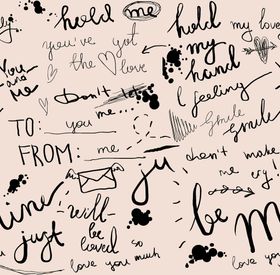 hold me
hold
my love
you've got
my
the love
hand
You
and
me
Don't
I feeling
me...
TO: you
Smile
smile
FROM: me
don't make
me cry
ju
une
will
be
just
be
loved
so
love you much
m
love